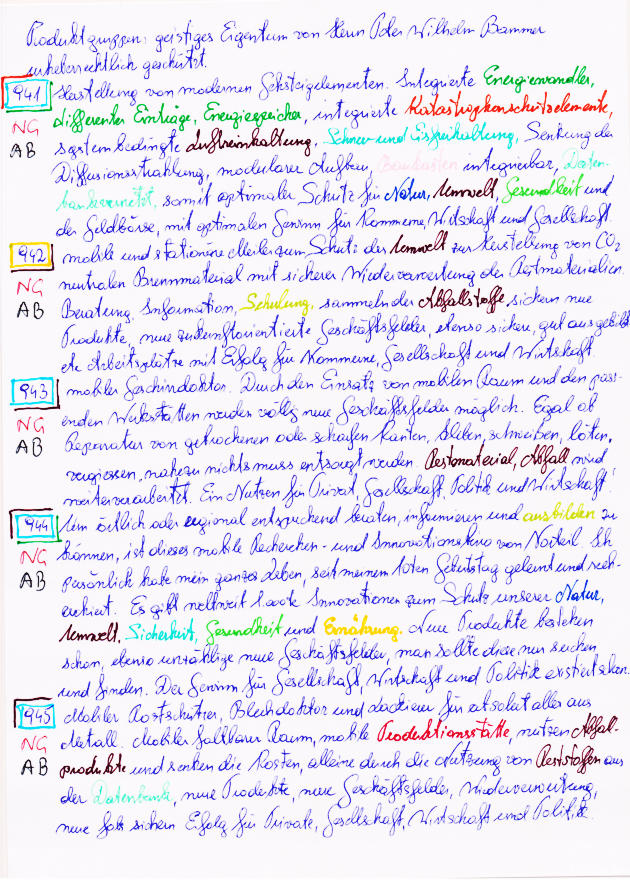 Produktgruppen: geistiges Eigentum von Herrn Peter Wilhelm Bammer
urheberrechtlich geschützt.
941 Herstellung von modernen Gehsteigelementen. Integrierte Energiewandler,
NG differenter Einträge, Energiespeicher, integrierte Katastrophenschutzelemente,
AB systembedingte Luftreinhaltung, Schnee und Eisfreihaltung, Senkung der
Diffusionsstrahlung, modularer Aufbau, Baukasten integrierbar, Daten-
bankvernetzt, somit optimaler Schutz für Natur, Umwelt, Gesundheit und
der Geldbörse, mit optimalen Gewinn für Kommune, Wirtschaft und Gesellschaft
942 mobile und stationäre Meiler zum Schutz der Umwelt zur Herstellung von CO2
NG neutralen Brennmaterial mit sicherer Wiederverwertung der Restmaterialien.
AB Beratung, Information, Schulung, sammeln der Abfallstoffe sichern neue
Produkte, neue zukunftsorientierte Geschäftsfelder, ebenso sichere, gut ausgebild
ete Arbeitsplätze mit Erfolg für Kommune, Gesellschaft und Wirtschaft
943 mobiler Geschirrdoktor. Durch den Einsatz von mobilen Raum und den pass-
NG enden Werkstätten werden völlig neue Geschäftsfelder möglich. Egal ob
AB Reparatur von gebrochenen oder scharfen Kanten, kleben, schweißen, löten,
vergiessen, nahezu nichts muss entsorgt werden. Restmaterial, Abfall wird
weiterverarbeitet. Ein Nutzen für Privat, Gesellschaft, Politik und Wirtschaft!
944 Um örtlich oder regional entsprechend beraten, informieren und ausbilden zu
NG können, ist dieses mobile Recherchen- und Innovationsbüro von Vorteil. Ich
AB persönlich habe mein ganzes Leben, seit meinem 10ten Geburtstag gelernt und rech-
erchiert. Es gibt weltweit 1.000te Innovationen zum Schutz unserer Natur,
Umwelt, Sicherheit, Gesundheit und Ernährung. Neue Produkte bestehen
schon, ebenso unzählige neue Geschäftsfelder, man sollte diese nur suchen
und finden. Der Gewinn für Gesellschaft, Wirtschaft und Politik existiert schon.
945 Mobiler Rostschützer, Blechdoktor und Lackierer für absolut alles aus
NG Metall. Mobiler faltbarer Raum, mobile Produktionsstätte, nutzen Abfall-
AB produkte und senken die Kosten, alleine durch die Nutzung von Reststoffen aus
der Datenbank, neue Produkte, neue Geschäftsfelder, Wiederverwertung,
neue Jobs sichern Erfolg für Private, Gesellschaft, Wirtschaft und Politik.